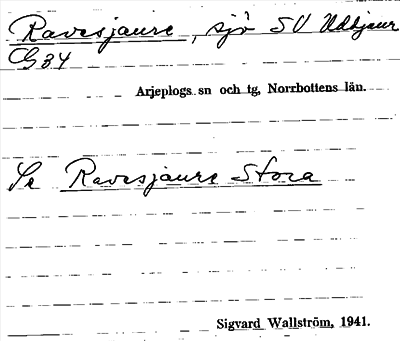 Ravesjaure, sjö SV Uddjaur
G34
Arjeplogs sn och tg, Norrbottens län.
Se Ravesjaure Stora
Sigvard Wallström, 1941.